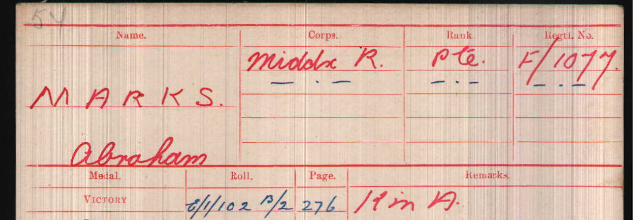 54
Name. Corps. Rank. Regtl. No.
Middx R. Pte. F/1077.
— . — — . — — . —
MARKS.
Abraham
Medal. Roll. Page. Remarks.
VICTORY E/1/102 B/2 276 K in A.